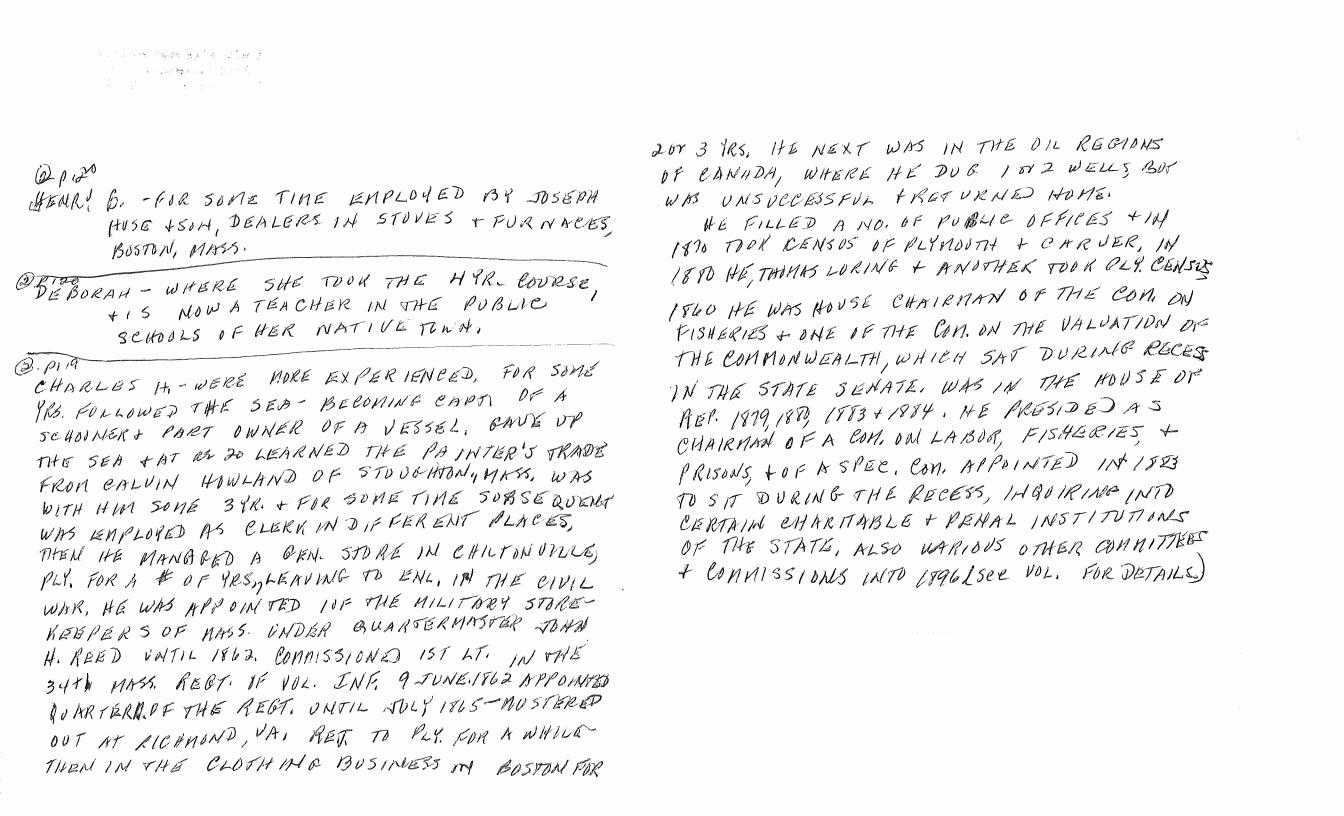 ② P120
HENRY G. - FOR SOME TIME EMPLOYED BY JOSEPH
HUSE + SON, DEALERS IN STOVES + FURNACES,
BOSTON, MASS.
② P120
DEBORAH - WHERE SHE TOOK THE 4 YR. COURSE,
+ IS NOW A TEACHER IN THE PUBLIC
SCHOOLS OF HER NATIVE TOWN.
②. P119
CHARLES H. - WERE MORE EXPERIENCED. FOR SOME
YRS. FOLLOWED THE SEA - BECOMING CAPT. OF A
SCHOONER + PART OWNER OF A VESSEL. GAVE UP
THE SEA + AT 20 LEARNED THE PAINTER'S TRADE
FROM CALVIN HOWLAND OF STOUGHTON, MASS. WAS
WITH HIM SOME 3 YR. + FOR SOME TIME SUBSEQUENT
WAS EMPLOYED AS CLERK IN DIFFERENT PLACES,
THEN HE MANAGED A GEN. STORE IN CHILTONVILLE,
PLY. FOR A # OF YRS., LEAVING TO ENL. IN THE CIVIL
WAR. HE WAS APPOINTED 1 OF THE MILITARY STORE-
KEEPERS OF MASS. UNDER QUARTERMASTER JOHN
H. REED UNTIL 1862. COMMISSIONED 1ST LT. IN THE
34th MASS. REGT. OF VOL. INF. 9 JUNE 1862 APPOINTED
QUARTERM. OF THE REGT. UNTIL JULY 1865 - MUSTERED
OUT AT RICHMOND, VA. RET. TO PLY. FOR A WHILE -
THEN IN THE CLOTHING BUSINESS IN BOSTON FOR
2 or 3 YRS. HE NEXT WAS IN THE OIL REGIONS
OF CANADA, WHERE HE DUG 1 or 2 WELLS, BUT
WAS UNSUCCESSFUL + RETURNED HOME.
HE FILLED A NO. OF PUBLIC OFFICES + IN
1870 TOOK CENSUS OF PLYMOUTH + CARVER, IN
1880 HE, THOMAS LORING + ANOTHER TOOK PLY. CENSUS
1860 HE WAS HOUSE CHAIRMAN OF THE COM. ON
FISHERIES + ONE OF THE COM. ON THE VALUATION OF
THE COMMONWEALTH, WHICH SAT DURING RECESS
IN THE STATE SENATE. WAS IN THE HOUSE OF
REP. 1879, 1880, 1883 + 1884. HE PRESIDED AS
CHAIRMAN OF A COM. ON LABOR, FISHERIES, +
PRISONS, + OF A SPEC. COM. APPOINTED IN 1883
TO SIT DURING THE RECESS, INQUIRING INTO
CERTAIN CHARITABLE + PENAL INSTITUTIONS
OF THE STATE, ALSO VARIOUS OTHER COMMITTEES
+ COMMISSIONS INTO 1896 (see VOL. FOR DETAILS)